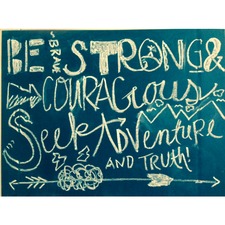 BE BRAVE STRONG &
COURAGIOUS
SEEK ADVENTURE
AND TRUTH!